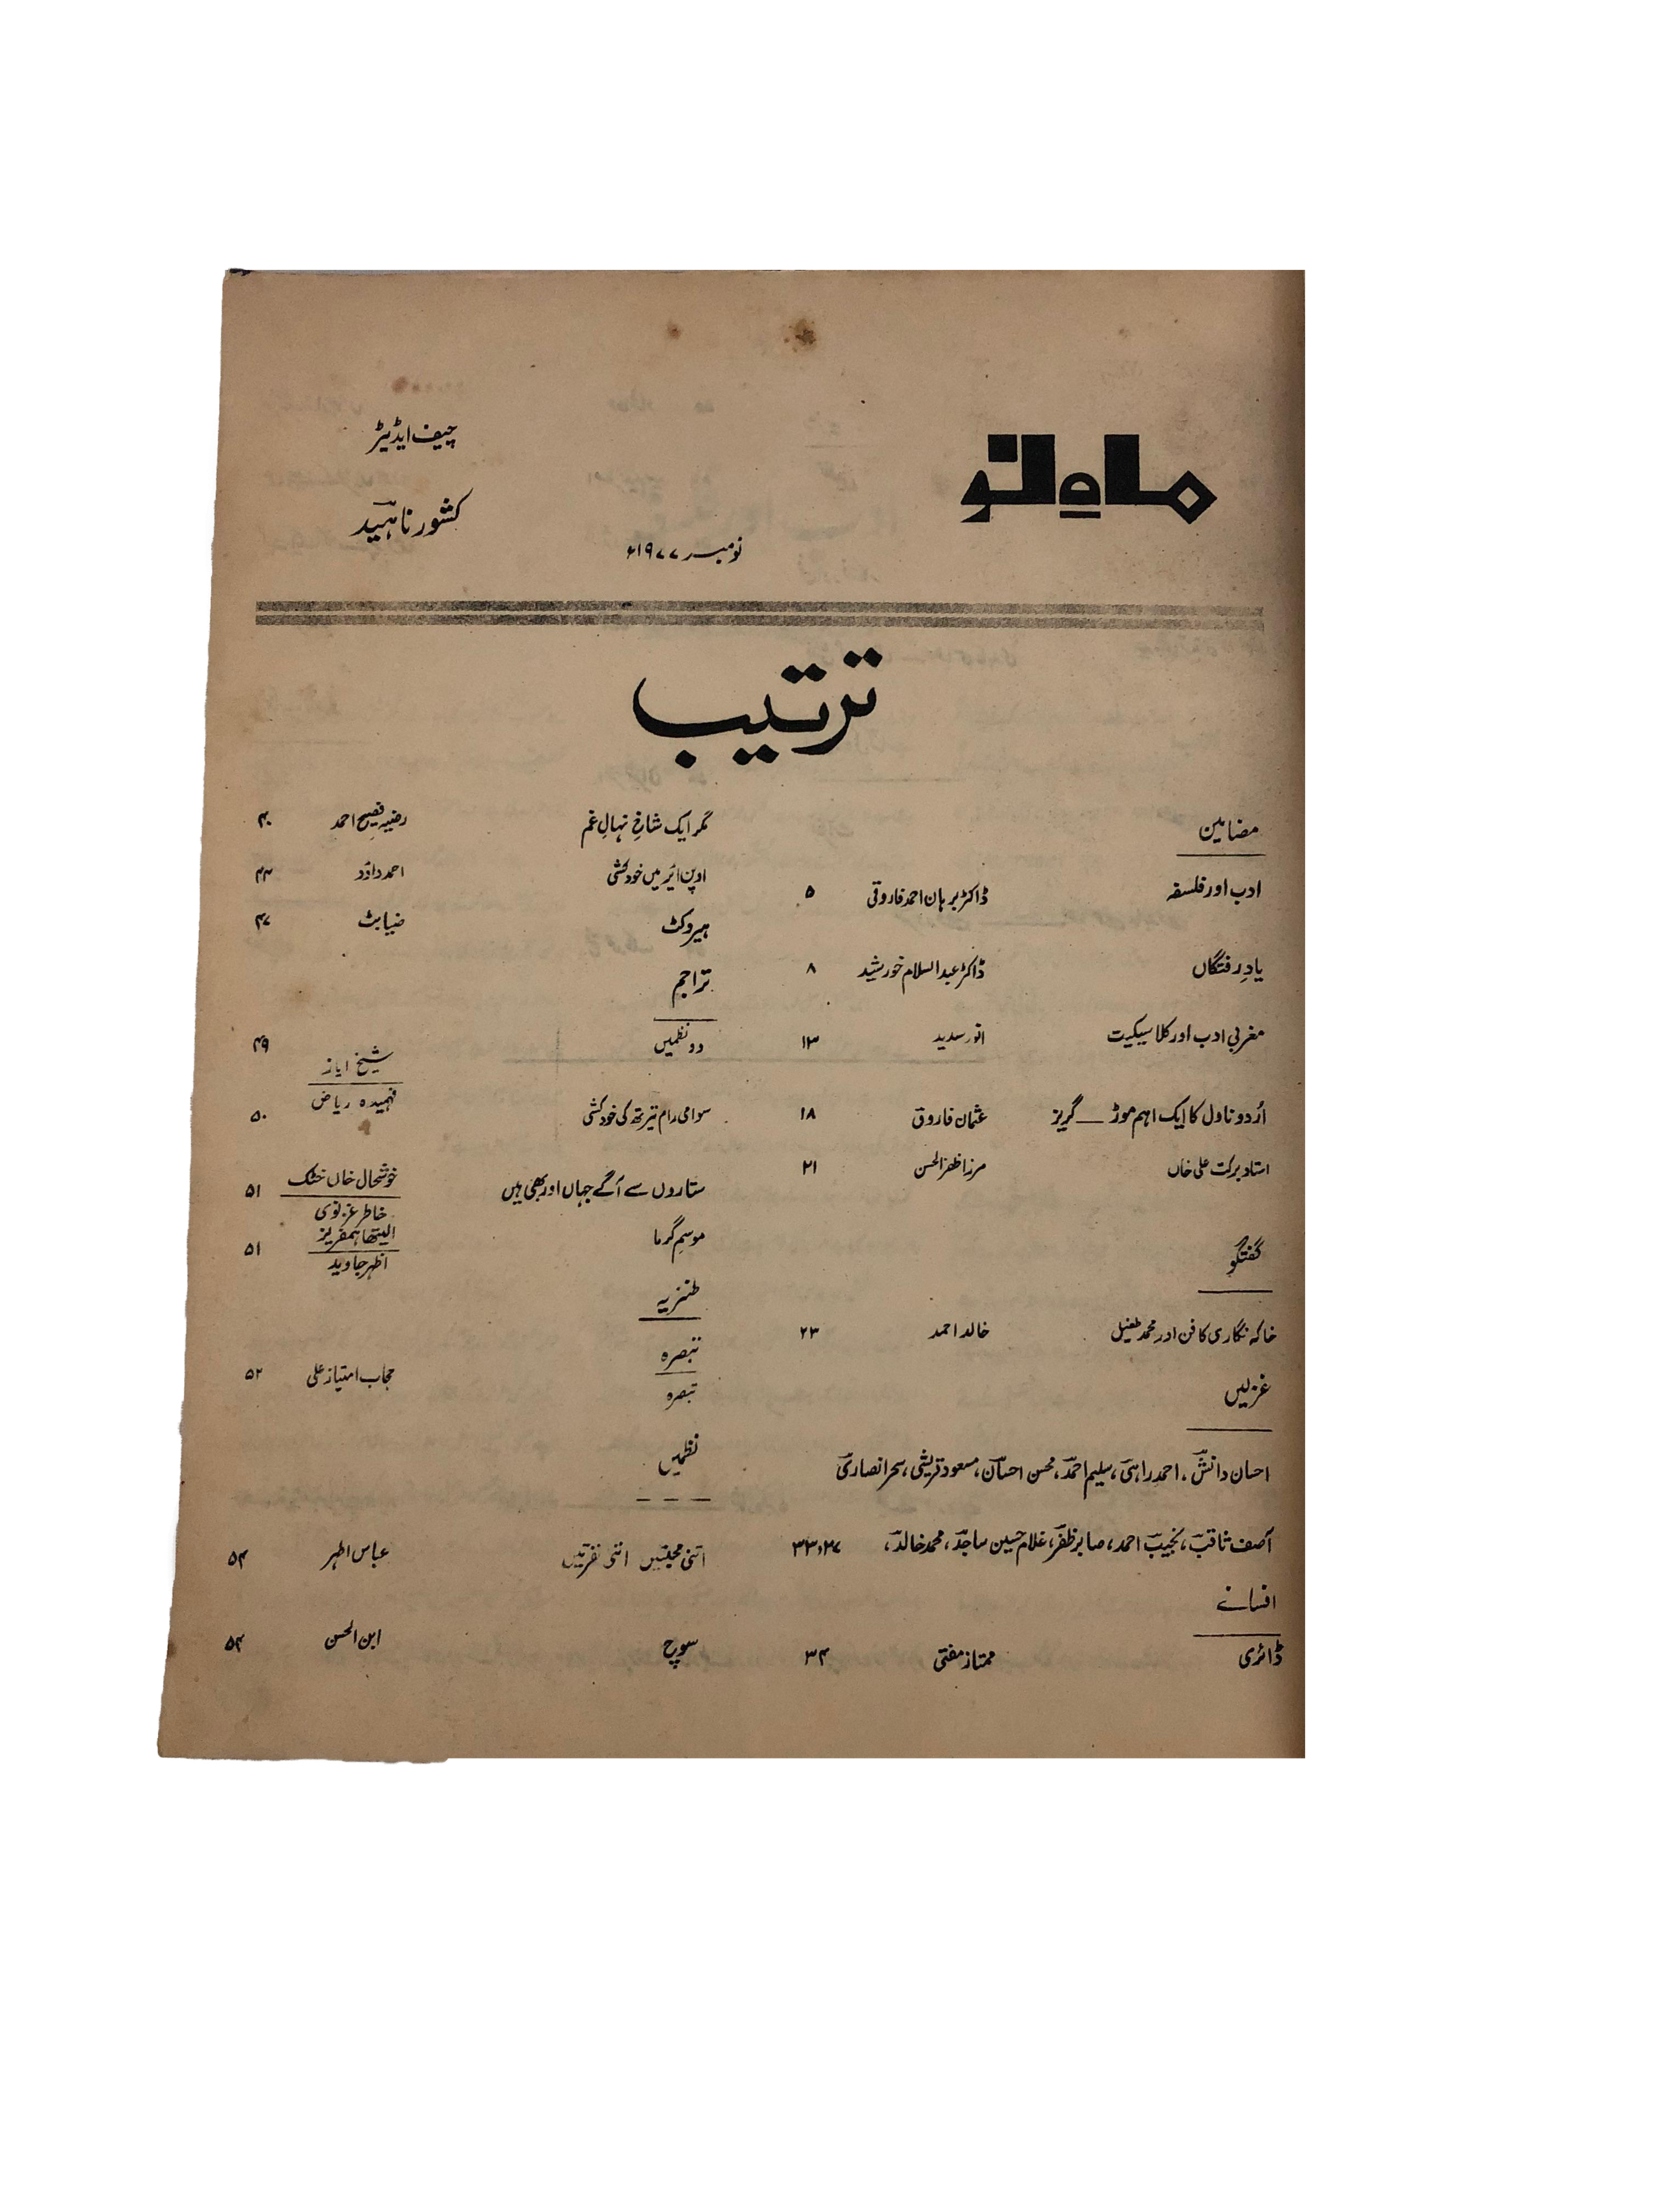 ماہ نو
چیف ایڈیٹر
کشور ناہید
نومبر ۱۹۷۷ء
ترتیب
مضامین
ادب اور فلسفہ ڈاکٹر برہان احمد فاروقی ۵
یادِ رفتگاں ڈاکٹر عبدالسلام خورشید ۸
مغربی ادب اور کلاسیکیت انور سدید ۱۳
اُردو ناول کا ایک اہم موڑ — گریز عثمان فاروق ۱۸
استاد برکت علی خاں مرزا ظفر الحسن ۲۱
گفتگو
خاکہ نگاری کا فن اور محمد طفیل خالد احمد ۲۳
غزلیں
احسان دانش، احمد راہی، سلیم احمد، محسن احسان، مسعود قریشی، سحر انصاری
آصف ثاقب، نجیب احمد، صابر ظفر، غلام حسین ساجد، محمد خالد، ۲۷، ۳۳
افسانے
ڈائری ممتاز مفتی ۳۴
مگر ایک شاخِ نہالِ غم رضیہ فصیح احمد ۴۰
اوپن ائیر میں خودکشی احمد داؤد ۴۴
ہیروکٹ ضیا بٹ ۴۷
تراجم
دو نظمیں شیخ ایاز ۴۹
فہمیدہ ریاض
سوامی رام تیرتھ کی خودکشی ۵۰
ستاروں سے آگے جہاں اور بھی ہیں خوشحال خاں خٹک ۵۱
خاطر غزنوی
موسمِ گرما الیتھا ہمفریز ۵۱
اظہر جاوید
طنزیہ
تبصرہ
تبصرہ حجاب امتیاز علی ۵۲
نظمیں
اتنی محبتیں اتنی نفرتیں عباس اطہر ۵۴
سوچ ابن الحسن ۵۴